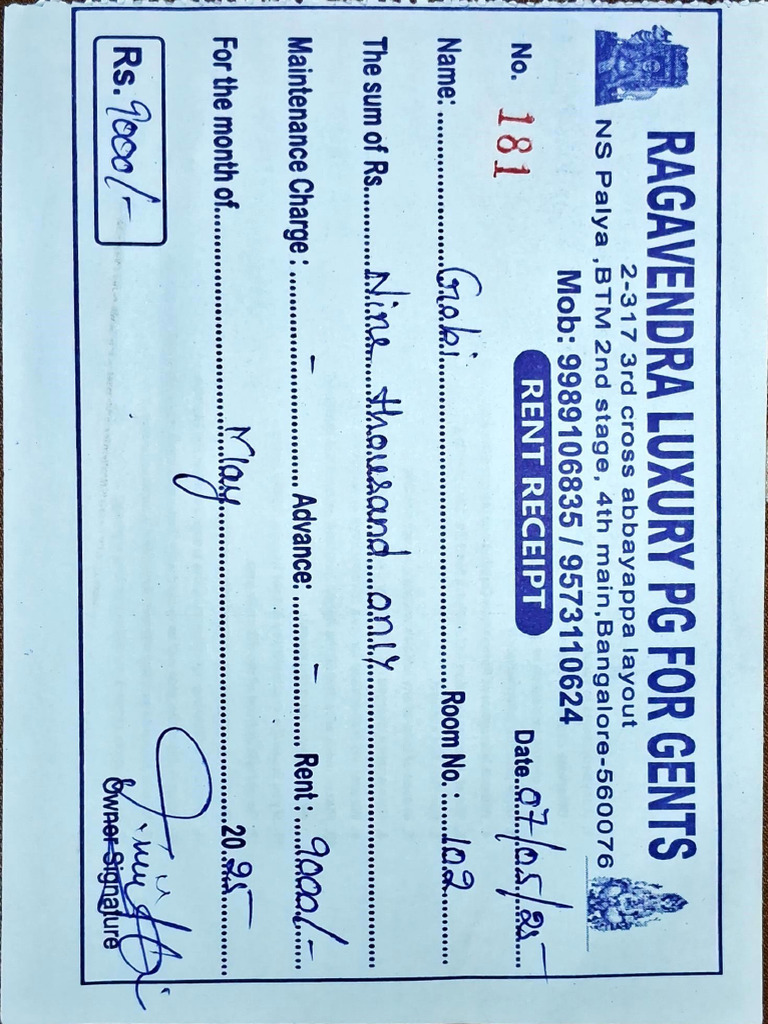 RAGAVENDRA LUXURY PG FOR GENTS
2-317 3rd cross abbayappa layout
NS Palya ,BTM 2nd stage, 4th main,Bangalore-560076
Mob: 9989106835 / 9573110624
No. 181 RENT RECEIPT Date 07/05/25
Name: Gobi Room No. : 102
The sum of Rs. Nine thousand only
Maintenance Charge : - Advance: - Rent : 9000/-
For the month of May 2025
Rs. 9000/- Owner Signature